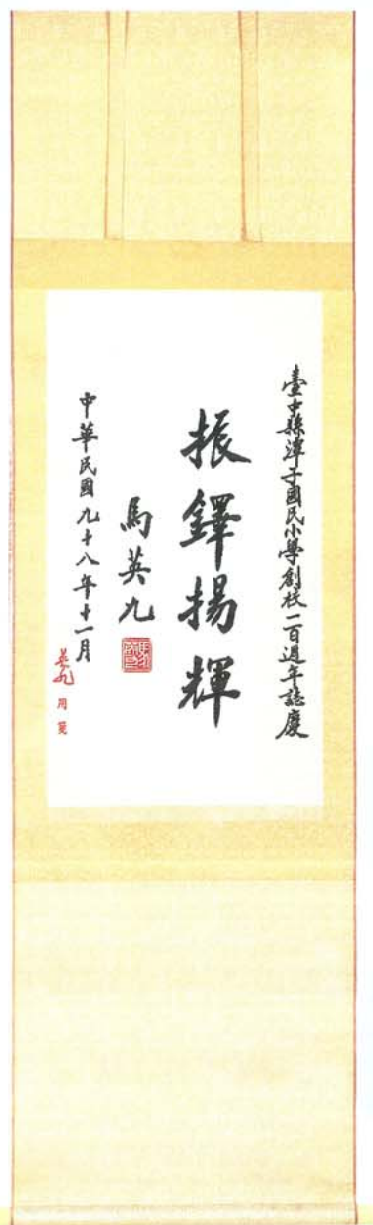 臺中縣潭子國民小學創校一百週年誌慶
振鐸揚輝
馬英九
中華民國九十八年十一月
英九
用箋